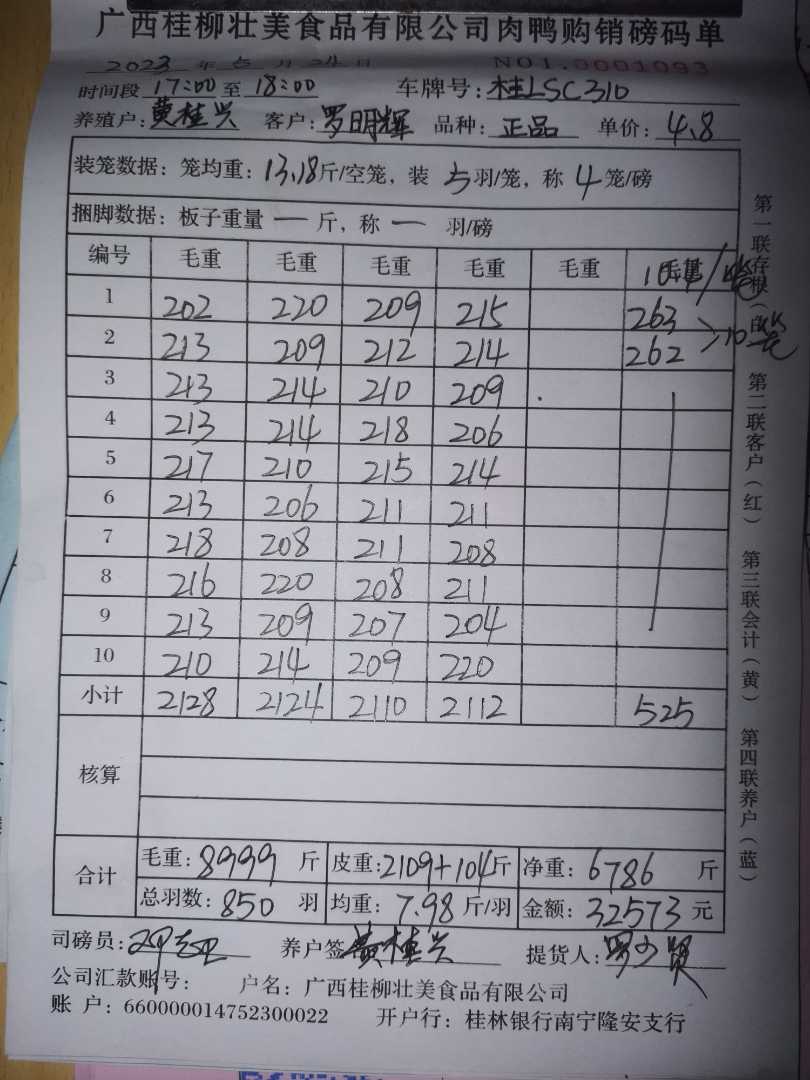 广西桂柳壮美食品有限公司肉鸭购销磅码单
2023 年 5 月 24 日 NO1.0001093
时间段 17:00 至 18:00 车牌号: 桂LSC310
养殖户: 黄桂兴 客户: 罗明辉 品种: 正品 单价: 4.8
装笼数据: 笼均重: 13.18斤/空笼, 装 5羽/笼, 称 4 笼/磅
捆脚数据: 板子重量 一 斤, 称 一 羽/磅
编号 毛重 毛重 毛重 毛重 毛重 毛重
1 202 220 209 215 263
2 213 209 212 214 262
3 213 214 210 209
4 213 214 218 206
5 217 210 215 214
6 213 206 211 211
7 218 208 211 208
8 216 220 208 211
9 213 209 207 204
10 210 214 209 220
小计 2128 2124 2110 2112 525
核算
合计 毛重: 8999 斤 皮重: 2109+104斤 净重: 6786 斤
总羽数: 850 羽 均重: 7.98 斤/羽 金额: 32573 元
司磅员: 养户签 黄桂兴 提货人: 罗少贤
公司汇款账号: 户名: 广西桂柳壮美食品有限公司
账 户: 660000014752300022 开户行: 桂林银行南宁隆安支行
第一联存根(白)
第二联客户(红)
第三联会计(黄)
第四联养户(蓝)